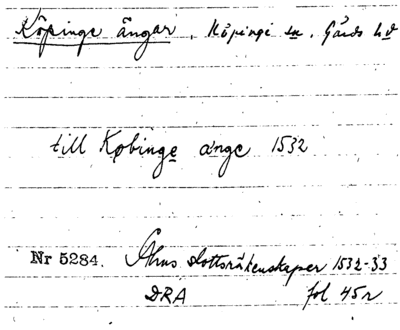 Köpinge ängar, Köpinge sn. Gärds hd
till Købinge ænge 1532
Nr 5284. Åhus slottsräkenskaper 1532-33
DRA fol 45r